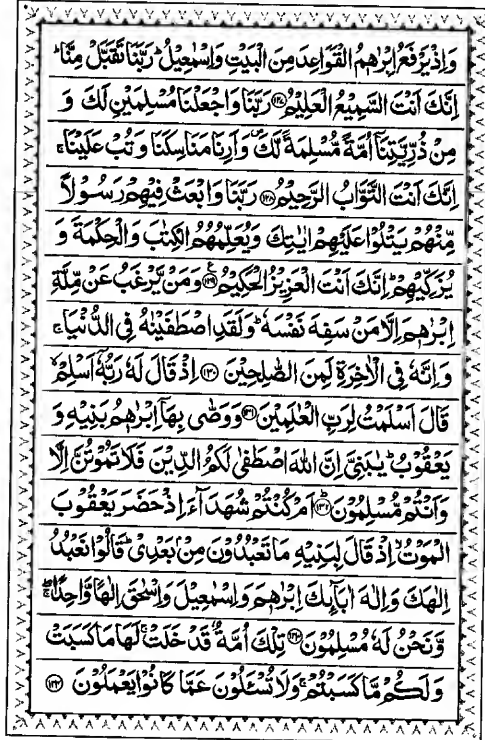 وَاِذْ يَرْفَعُ اِبْرٰهٖمُ الْقَوَاعِدَ مِنَ الْبَيْتِ وَاِسْمٰعِيْلُ ؕ رَبَّنَا تَقَبَّلْ مِنَّا ؕ
اِنَّكَ اَنْتَ السَّمِيْعُ الْعَلِيْمُ ﴿۱۲۷﴾ رَبَّنَا وَاجْعَلْنَا مُسْلِمَيْنِ لَكَ وَ
مِنْ ذُرِّيَّتِنَاۤ اُمَّةً مُّسْلِمَةً لَّكَ ۪ وَاَرِنَا مَنَاسِكَنَا وَتُبْ عَلَيْنَا ۚ
اِنَّكَ اَنْتَ التَّوَّابُ الرَّحِيْمُ ﴿۱۲۸﴾ رَبَّنَا وَابْعَثْ فِيْهِمْ رَسُوْلًا
مِّنْهُمْ يَتْلُوْا عَلَيْهِمْ اٰيٰتِكَ وَيُعَلِّمُهُمُ الْكِتٰبَ وَالْحِكْمَةَ وَ
يُزَكِّيْهِمْ ؕ اِنَّكَ اَنْتَ الْعَزِيْزُ الْحَكِيْمُ ﴿۱۲۹﴾ ع وَمَنْ يَّرْغَبُ عَنْ مِّلَّةِ
اِبْرٰهٖمَ اِلَّا مَنْ سَفِهَ نَفْسَهٗ ؕ وَلَقَدِ اصْطَفَيْنٰهُ فِى الدُّنْيَا ۚ
وَاِنَّهٗ فِى الْاٰخِرَةِ لَمِنَ الصّٰلِحِيْنَ ﴿۱۳۰﴾ اِذْ قَالَ لَهٗ رَبُّهٗۤ اَسْلِمْ ۙ
قَالَ اَسْلَمْتُ لِرَبِّ الْعٰلَمِيْنَ ﴿۱۳۱﴾ وَوَصّٰى بِهَاۤ اِبْرٰهٖمُ بَنِيْهِ وَ
يَعْقُوْبُ ؕ يٰبَنِىَّ اِنَّ اللّٰهَ اصْطَفٰى لَكُمُ الدِّيْنَ فَلَا تَمُوْتُنَّ اِلَّا
وَاَنْتُمْ مُّسْلِمُوْنَ ﴿۱۳۲﴾ اَمْ كُنْتُمْ شُهَدَآءَ اِذْ حَضَرَ يَعْقُوْبَ
الْمَوْتُ ۙ اِذْ قَالَ لِبَنِيْهِ مَا تَعْبُدُوْنَ مِنْۢ بَعْدِىْ ؕ قَالُوْا نَعْبُدُ
اِلٰهَكَ وَاِلٰهَ اٰبَآئِكَ اِبْرٰهٖمَ وَاِسْمٰعِيْلَ وَاِسْحٰقَ اِلٰهًا وَّاحِدًا ۖۚ
وَّنَحْنُ لَهٗ مُسْلِمُوْنَ ﴿۱۳۳﴾ تِلْكَ اُمَّةٌ قَدْ خَلَتْ ۚ لَهَا مَا كَسَبَتْ
وَلَكُمْ مَّا كَسَبْتُمْ ۚ وَلَا تُسْـَٔلُوْنَ عَمَّا كَانُوْا يَعْمَلُوْنَ ﴿۱۳۴﴾